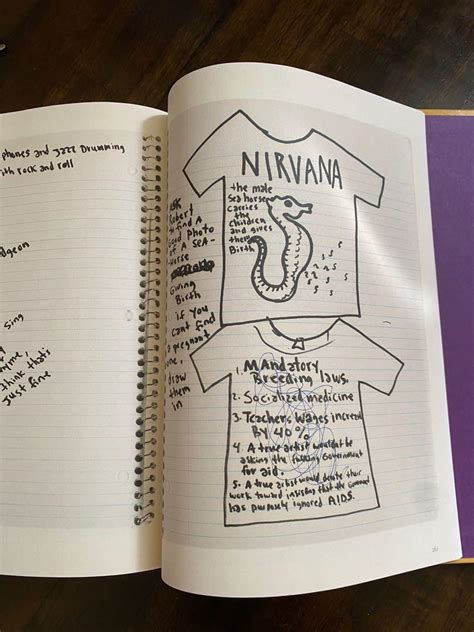 phones and jazz Drumming
with rock and roll
sing
think that's
just fine
ASK
Robert
to find A
good Photo
of A SEA-
horse
Giving
Birth
if you
cant find
a pregnant
one,
draw
them
in
NIRVANA
the male
Seahorse
carries
the
children
and gives
them
Birth
1. MANdatory
Breeding laws.
2. Socialized medicine
3. Teachers Wages increase
By 40%
4. A true artist wouldnt be
asking the fucking Government
for aid.
5. A true artist would devote their
work toward insisting that the government
has purposely ignored AIDS.